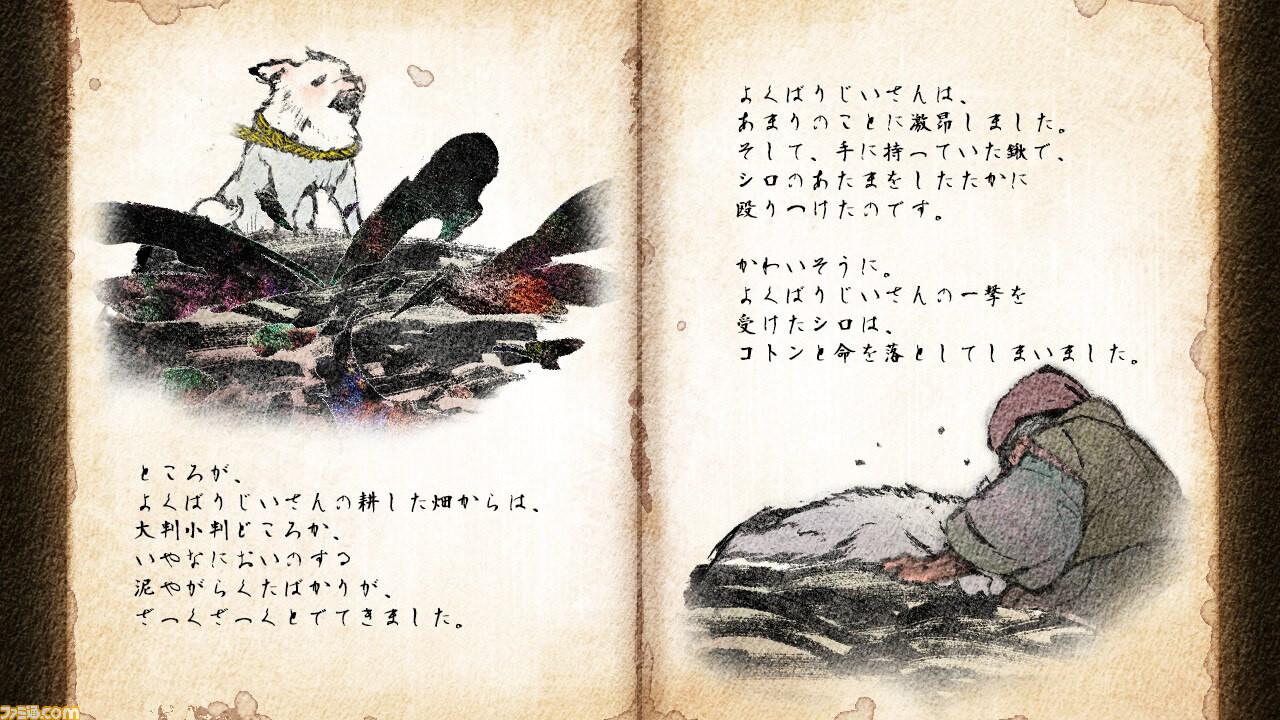 ところが、
よくばりじいさんの耕した畑からは、
大判小判どころか、
いやなにおいのする
泥やがらくたばかりが、
ざっくざっくとでてきました。
よくばりじいさんは、
あまりのことに激昂しました。
そして、手に持っていた鍬で、
シロのあたまをしたたかに
殴りつけたのです。
かわいそうに。
よくばりじいさんの一撃を
受けたシロは、
コトンと命を落としてしまいました。
ファミ通.com